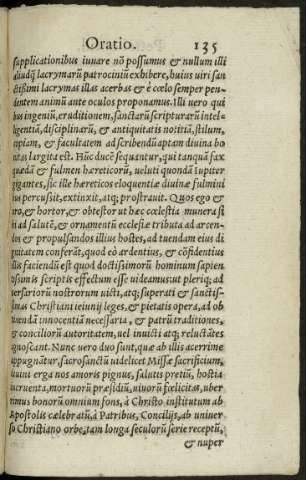 Oratio. 135
supplicationibus iuuare nõ possumus & nullum illi
aliudq́ lacrymarũ patrociniũ exhibere, huius uiri san
ctißimi lacrymas illas acerbas & è cœlo semper pen-
dentem animũ ante oculos proponamus. Illi uero qui
bus ingeniũ, eruditionem, sanctarũ scripturarũ intel-
ligentiã, disciplinarũ, & antiquitatis notitiã, stilum,
copiam, & facultatem ad scribendũ aptam diuina bo
nitas largita est. Hũc ducẽ sequantur, qui tanquã fax
quædã & fulmen hæreticorũ, ueluti quondã Iupiter
gigantes, sic ille hæreticos eloquentiæ diuinæ fulmini
bus percussit, extinxit, atq; prostrauit. Quos ego &
oro, & hortor, & obtestor ut hæc cœlestia munera si
bi ad salutẽ, & ornamentũ ecclesiæ tributa ad arcen-
dos & propulsandos illius hostes, ad tuendam eius di
gnitatem conferãt, quod eò ardentius, & cõfidentius
illis faciendũ est quod doctißimorũ hominum sapien
tißimis scriptis effectum esse uideamus: ut pleriq; ad
uersariorũ nostrorum uicti, atq; superati & sanctis-
simas Christiani ieiunij leges, & pietatis opera, ad ob
tinendã innocentiã necessaria, & patrũ traditiones,
& conciliorũ autoritatem, uel inuicti atq; reluctãtes
agnoscant. Nunc uero duo sunt, quæ ab illis acerrime
oppugnãtur, sacrosanctũ uidelicet Missæ sacrificium,
diuini erga nos amoris pignus, salutis pretiũ, hostia
incruenta, mortuorũ præsidiũ, uiuorũ fœlicitas, uber
rimus bonorũ omnium fons, à Christo institutum ab
Apostolis cælebratũ, à Patribus, Concilijs, ab uniuer
so Christiano orbe, tam longa seculorũ serie receptũ,
& nuper